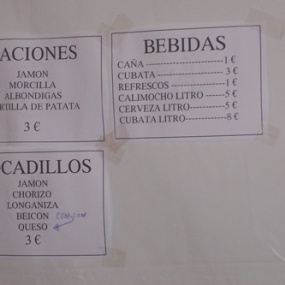 ACIONES
JAMON
MORCILLA
ALBONDIGAS
RTILLA DE PATATA
3 €
BEBIDAS
CAÑA --------------------------1 €
CUBATA -----------------------3 €
REFRESCOS -------------------1 €
CALIMOCHO LITRO ------5 €
CERVEZA LITRO-----------5 €
CUBATA LITRO-------------8 €
CADILLOS
JAMON
CHORIZO
LONGANIZA
BEICON
QUESO
3 €